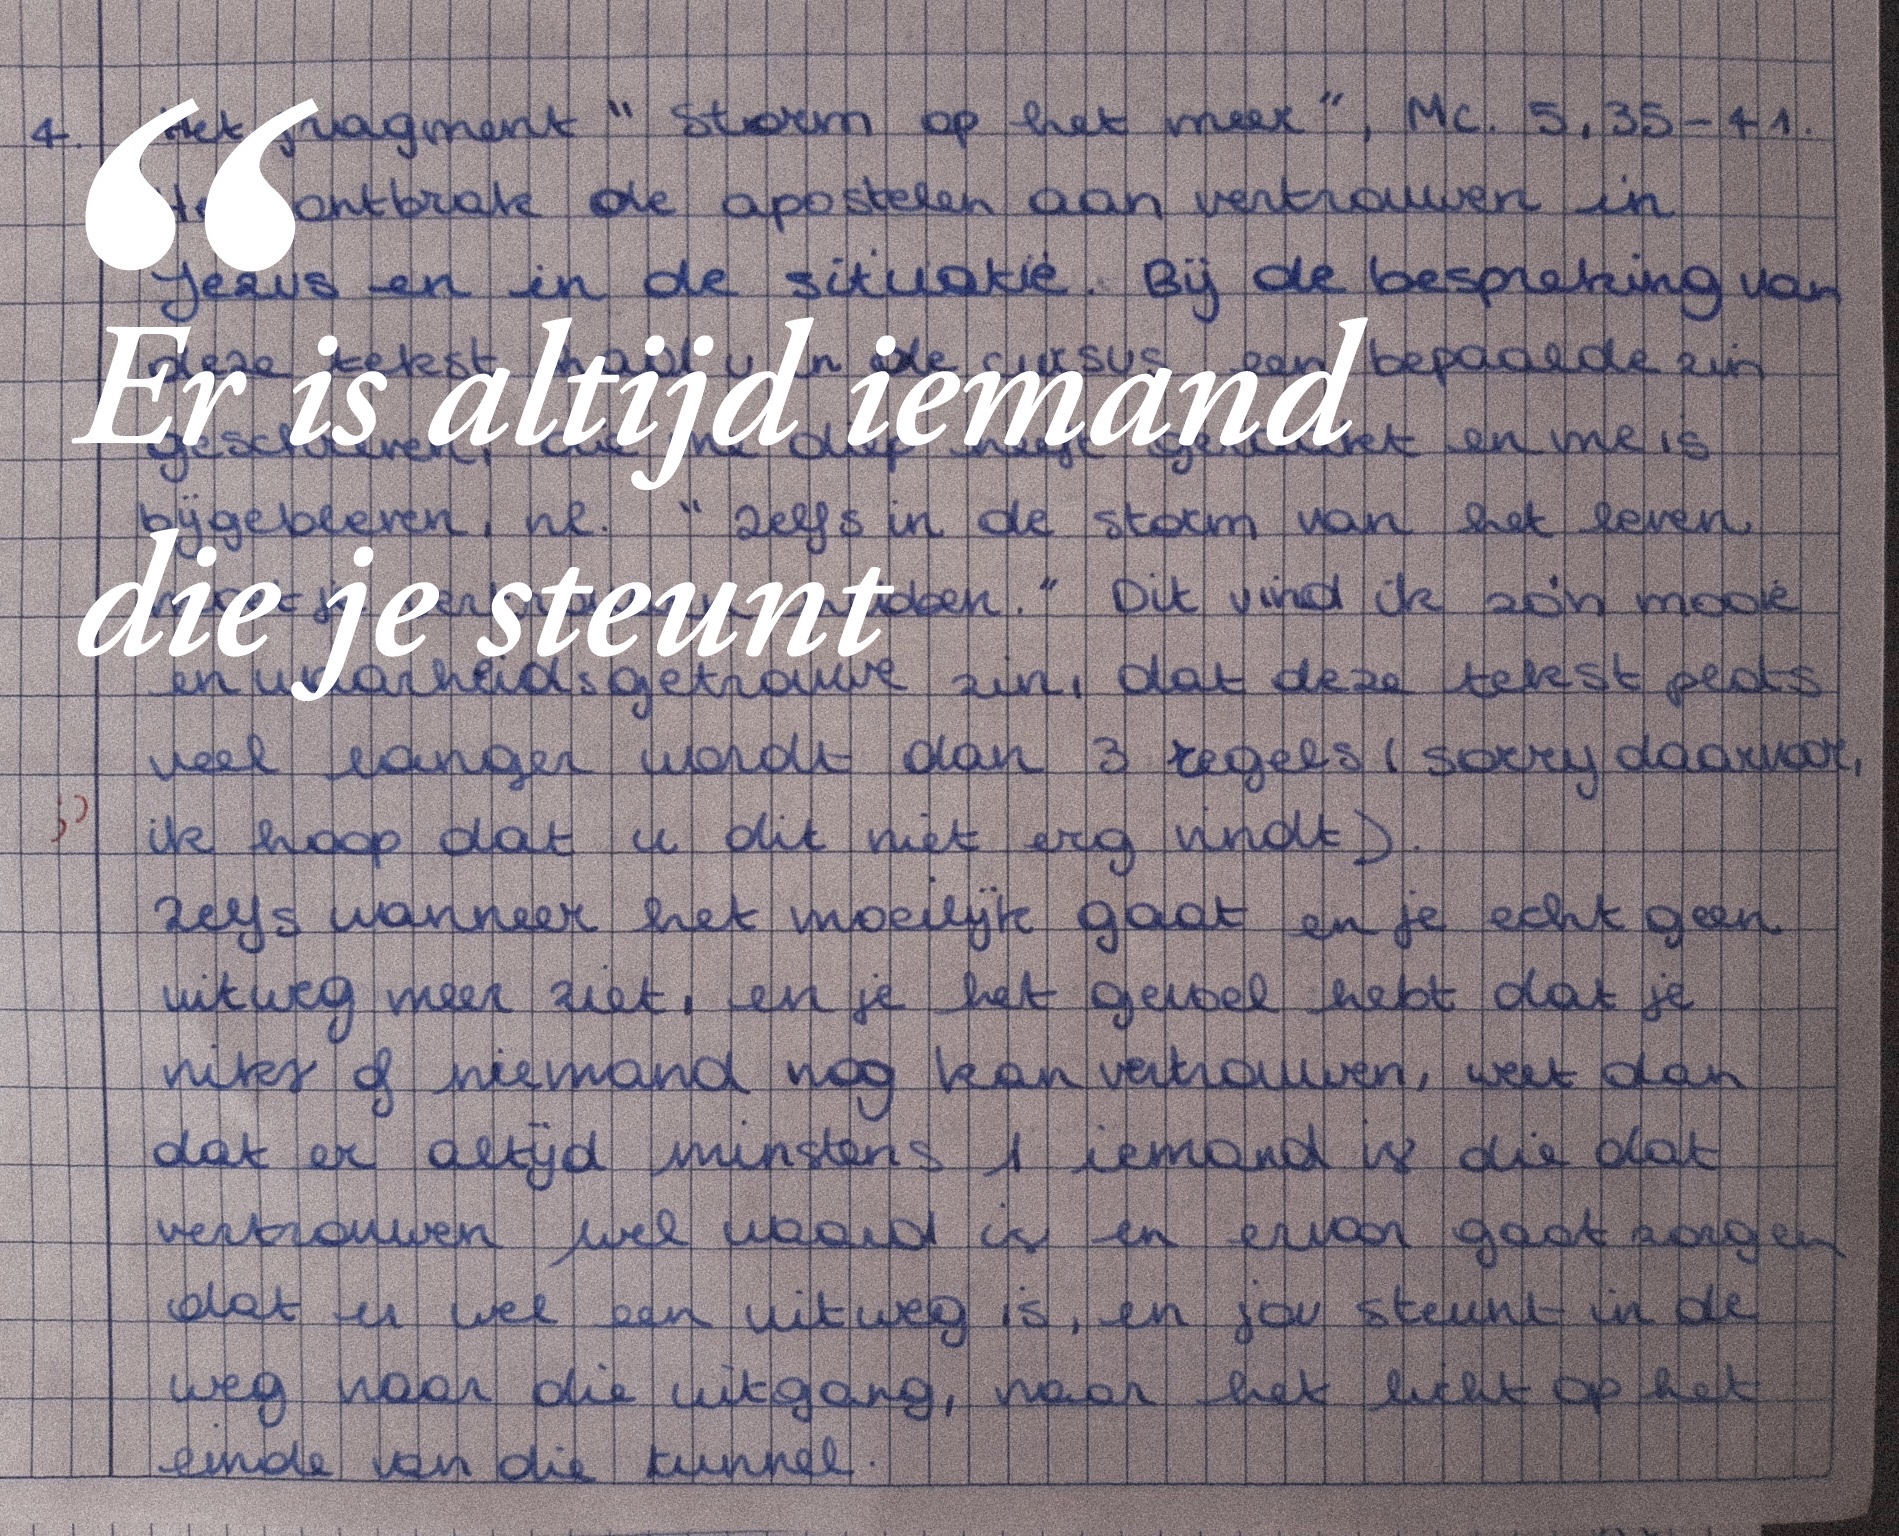 “
Er is altijd iemand
die je steunt
4. Het fragment "Storm op het meer", Mc. 5,35-41.
ontbrak de apostelen aan vertrouwen in
Jezus en in de situatie. Bij de bespreking van
deze tekst had u in de cursus een bepaalde zin
geschreven, die me diep heeft geraakt en me is
bijgebleven, nl. "Zelfs in de storm van het leven
moet je vertrouwen hebben." Dit vind ik zo'n mooie
en waarheidsgetrouwe zin, dat deze tekst plots
veel langer wordt dan 3 regels (sorry daarvoor,
;) ik hoop dat u dit niet erg vindt).
Zelfs wanneer het moeilijk gaat en je echt geen
uitweg meer ziet, en je het gevoel hebt dat je
niks of niemand nog kan vertrouwen, weet dan
dat er altijd minstens 1 iemand is die dat
vertrouwen wel waard is en ervoor gaat zorgen
dat er wel een uitweg is, en jou steunt in de
weg naar die uitgang, naar het licht op het
einde van die tunnel.